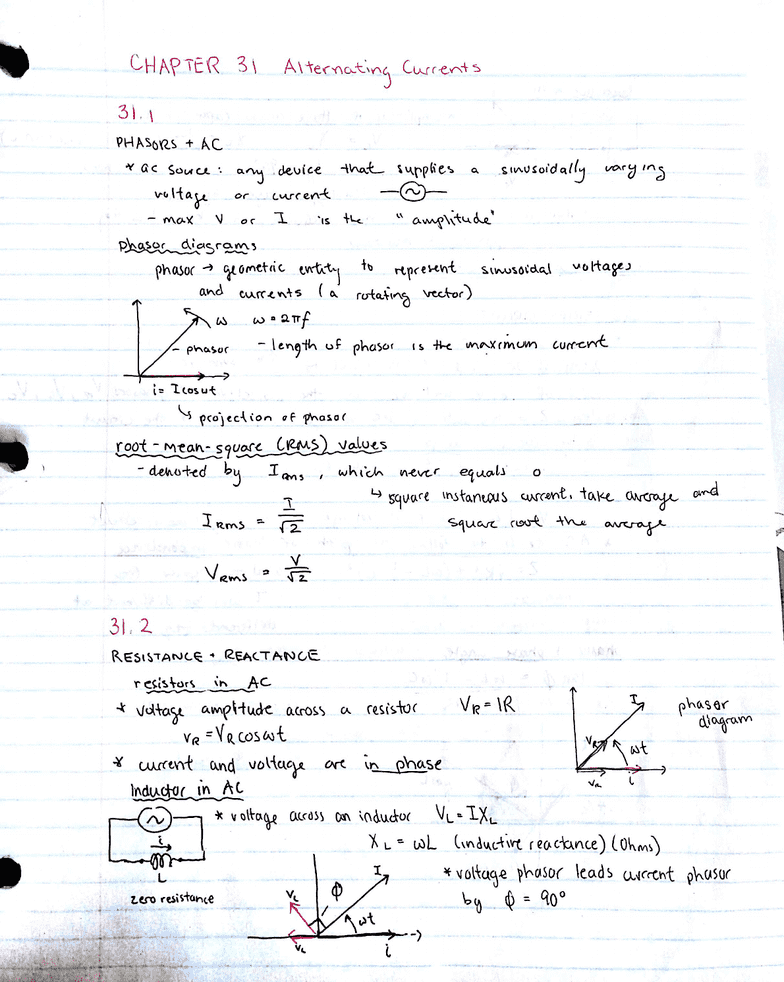 CHAPTER 31 Alternating Currents
31.1
PHASORS + AC
* ac source: any device that supplies a sinusoidally varying
voltage or current
- max V or I is the "amplitude"
phasor diagrams
phasor → geometric entity to represent sinusoidal voltages
and currents (a rotating vector)
ω ω = 2πf
- phasor - length of phasor is the maximum current
i = I cos ωt
↳ projection of phasor
root-mean-square (RMS) values
- denoted by Irms, which never equals 0
↳ square instaneous current, take average and
square root the average
IRMS = I/√2
VRMS = V/√2
31.2
RESISTANCE + REACTANCE
resistors in AC
* voltage amplitude across a resistor VR = IR
vR = VR cos ωt
* current and voltage are in phase
I
VR
ωt
vR i
phasor
diagram
Inductor in AC
* voltage across an inductor VL = IXL
XL = ωL (inductive reactance) (Ohms)
* voltage phasor leads current phasor
by ϕ = 90°
i
L
zero resistance
VL ϕ I
ωt
vL i